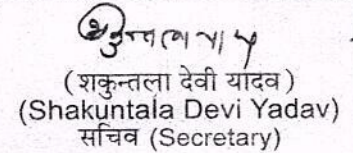 शकुन्तला
(शकुन्तला देवी यादव)
(Shakuntala Devi Yadav)
सचिव (Secretary)